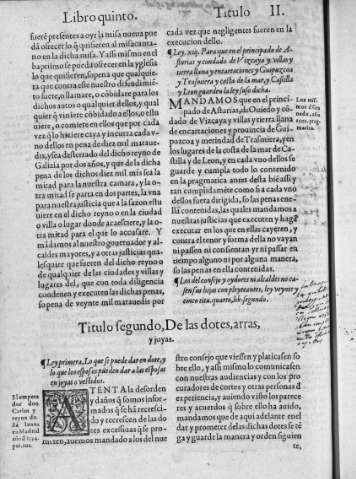 Libro quinto. Titulo II.
fueré presentes a oyr la misa nueua pue
da ofrecer lo q̃ quisieren al misacanta-
no en la dicha misa. Y assi mismo en el
baptismo se pueda ofrecer en la yglesia
lo que quisieren, so pena que qualquie-
ra que contra este nuestro defendimié
to fuere, o llamare, o cóbidare para los
dichos autos o qualquier dellos, y qual
quier q̃ viniere cóbidado a ellos, o estu
uiere, o comiere en ellos que por cada
vez q̃ lo hiziere caya y incurra cada v-
no dellos en pena de diez mil maraue-
dis, y sea desterrado del dicho reyno de
Galizia por dos años, y que de la dicha
pena de los dichos diez mil mrs sea la
mitad para la nuestra camara, y la o-
tra mitad se parta en dos partes, la vna
para nuestra justicia que a la sazon estu
uiere en el dicho reyno o en la ciudad
o villa o lugar donde acaesciere, y la o-
tra mitad para el que lo accusare. Y
mādamos al nuestro gouernador y al-
caldes mayores, y a otras justicias qua-
lesquier que fueren del dicho reyno o
de qualquier de las ciudades y villas y
lugares del, que con toda diligencia
condenen y executen las dichas penas,
so pena de veynte mil marauedis por
cada vez que negligentes fueren en la
execucion dello.
¶ Ley. xiij. Para que en el principado de A-
sturias y condado de Vizcaya y villas y
tierra llana y encartaciones y Guipuzcoa
y Trasmiera y costa de la mar, y Castilla
y Leon guarden la ley suso dicha.
MANDAMOS que en el princi-
pado de Asturias, de Ouiedo y có-
dado de Vizcaya y villas y tierra llana
de encartaciones y prouincia de Gui-
puzcoa y merindad de Trasmiera, y en
los lugares de la costa de la mar de Cas-
tilla y de Leon, y en cada vno dellos se
guarde y cumpla todo lo contenido
en la pragmatica antes desta bié assi y
tan cumplidaméte como si a cada vno
dellos fuera dirigida, so las penas ene-
lla contenidas, las quales mandamos a
nuestras justicias que executen y hagā
executar en los que en ellas cayeren, y
contra el tenor y forma della no vayan
ni passen ni consientan yr ni passar en
tiempo alguno ni por alguna manera,
so las penas en ella contenidas.
¶ Los del consejo y oydores ni alcaldes no ca-
sen sus hijos con pleyteantes, ley veynte y
cinco tit. quarto, lib. segundo.
Titulo segundo, De las dotes, arras,
y joyas.
¶ Ley primera. Lo que se puede dar en dote, y
lo que los esposos puedē dar a las esposas
en joyas o vestidos.
ATENTA la desorden
y daños q̃ somos infor-
mados q̃ se há recresci-
do y recrescen de las do
tes excessiuas q̃ se pro-
meten, auemos mandado a los del nue
stro consejo que viessen y platicassen so
bre ello, y assi mismo lo comunicasen
con nuestras audiencias y con los pro
curadores de cortes y otras personas d̃
experiencia, y auiendo visto los parece
res y acuerdos q̃ sobre ello ha auido,
mandamos que de aqui adelante enel
dar y prometer de las dichas dotes se té
ga y guarde la manera y orden siguien
te,